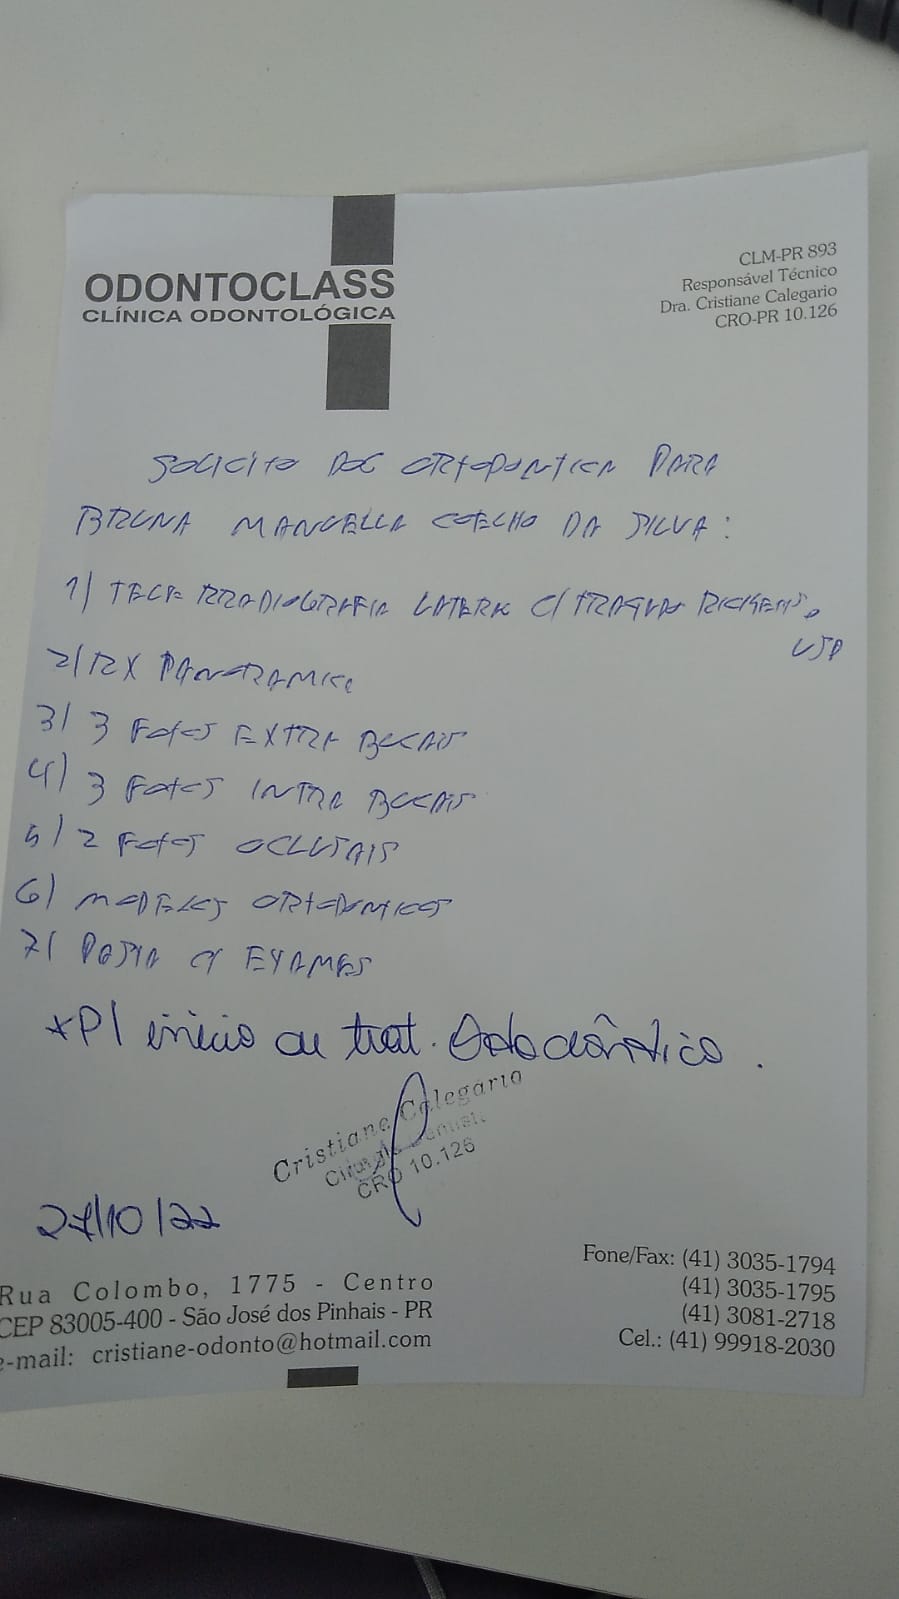 ODONTOCLASS
CLÍNICA ODONTOLÓGICA
CLM-PR 893
Responsável Técnico
Dra. Cristiane Calegario
CRO-PR 10.126
SOLICITO DOC ORTODONTICA PARA
BRUNA MANOELLA COELHO DA SILVA:
1) TELERRADIOGRAFIA LATERAL C/ TRAÇADO
USP
2) RX PANORAMICA
3) 3 FOTOS EXTRA BUCAIS
4) 3 FOTOS INTRA BUCAIS
5) 2 FOTOS OCLUSAIS
6) MODELOS ORTODONTICOS
7) PASTA C/ EXAMES
*P/ inicio de trat. Ortodôntico.
Cristiane Calegario
Cirurgiã Dentista
CRO 10.126
27/10/22
Rua Colombo, 1775 - Centro
CEP 83005-400 - São José dos Pinhais - PR
e-mail: cristiane-odonto@hotmail.com
Fone/Fax: (41) 3035-1794
(41) 3035-1795
(41) 3081-2718
Cel.: (41) 99918-2030